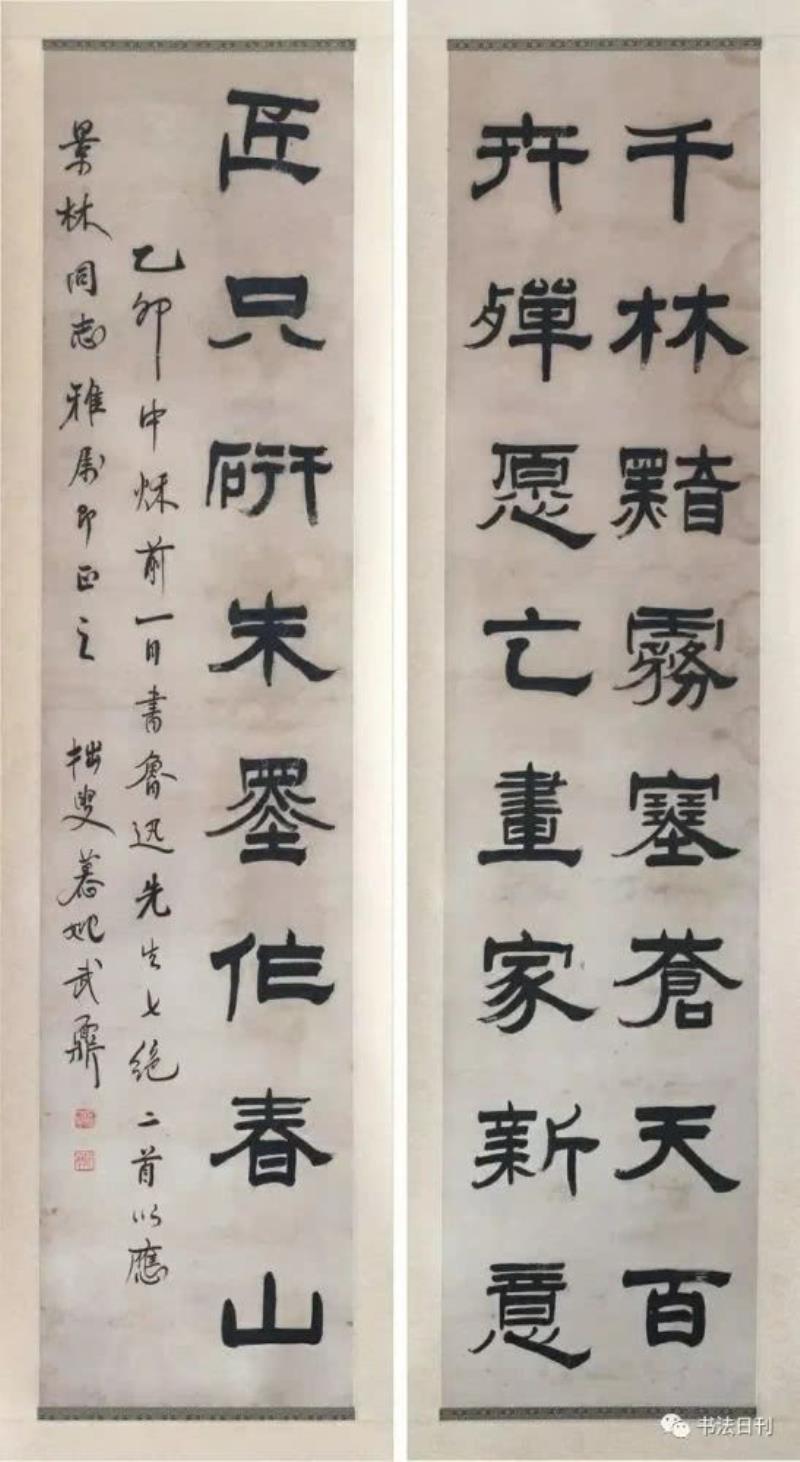 千林黯霧塞蒼天百
卉殫愿乞畫家新意
匠只研朱墨作春山
乙卯中秌前一日書魯迅先生七絕二首以應
景林同志雅屬即正之 拙叟慕姚武鼐
书法日刊